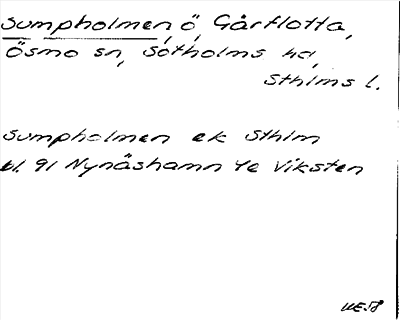 Sumpholmen, ö, Gårflotta,
Ösmo sn, Sotholms hd,
Sthlms l.
Sumpholmen ek Sthlm
bl. 91 Nynäshamn 4e Viksten
WE58